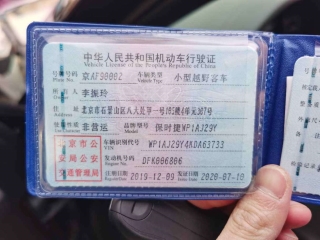 中华人民共和国机动车行驶证
Vehicle License of the People's Republic of China
号牌号码 京AF90002 车辆类型 小型越野客车
所有人 李振玲
住址 北京市石景山区八大处甲一号105楼4单元307号
使用性质 非营运 品牌型号 保时捷WP1AJ29Y
北京市公
安局公安
交通管理局
车辆识别代号 WP1AJ29Y4KDA63733
VIN
发动机号码 DFK006806
注册日期 2019-12-09 发证日期 2020-07-10